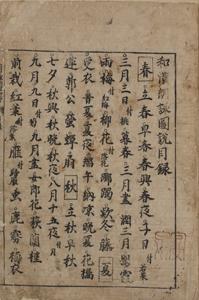 和漢朗詠圖説目録
春 立春 早春 春興 春夜 子日 付若菜
三月三日 付桃 暮春 三月盡 閏三月 鶯 霞
雨 梅 付紅梅 柳 花 躑躅 款冬 藤 夏
更衣 首夏 夏夜 端午 納凉 晩夏 花橘
蓮 郭公 螢 蟬 扇 秋 立秋 早秋
七夕 秋興 秋晩 秋夜 八月十五夜 付月
九月九日 付菊 九月盡 女郎花 萩 蘭 槿
前栽 紅葉 雁 虫 鹿 露 霧 擣衣